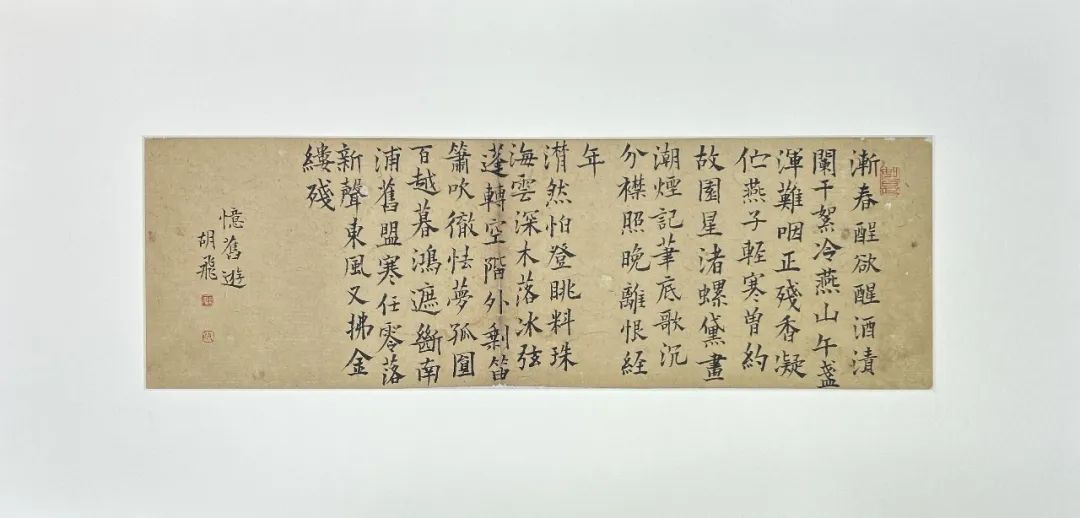 漸春酲欲醒酒漬
闌干絮冷燕山午盞
渾難咽正殘香凝
伫燕子輕寒曾約
故園星渚螺黛畫
潮煙記筆底歌沉
分襟照晚離恨経
年
潸然怕登眺料珠
海雲深木落冰弦
蓬轉空階外剩笛
簫吹徹怯夢孤圓
百越暮鴻遮斷南
浦舊盟寒任零落
新聲東風又拂金
縷殘
憶舊遊
胡飛